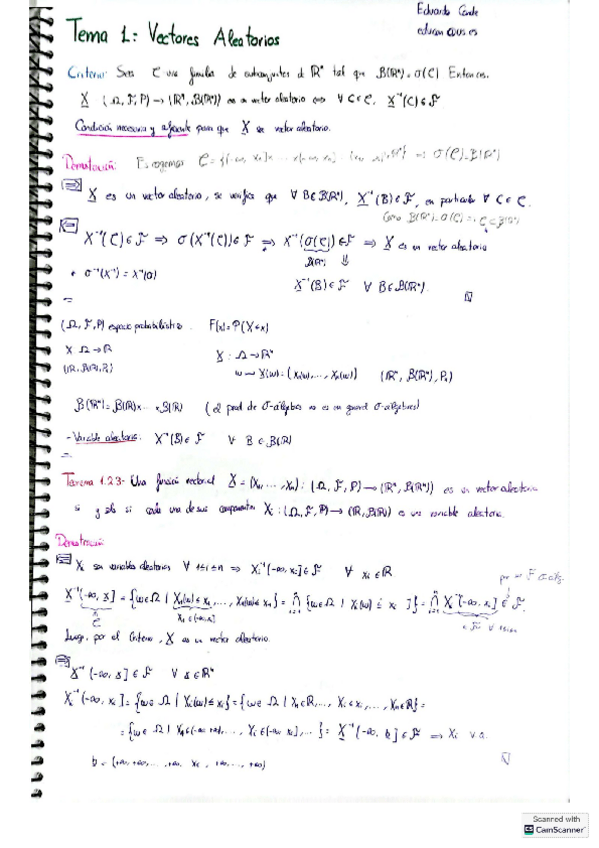 Eduardo Conde
educon@us.es
Tema 1: Vectores Aleatorios
Criterio: Sea C una familia de subconjuntos de ℝⁿ tal que B(ℝⁿ) = σ(C). Entonces,
X (Ω, F, P) → (ℝⁿ, B(ℝⁿ)) es un vector aleatorio ⇔ ∀ C ∈ C, X⁻¹(C) ∈ F
Condición necesaria y suficiente para que X sea vector aleatorio.
Demostración: Escogemos ⇒ σ(C) = B(ℝⁿ)
⇒ X es un vector aleatorio, se verifica que ∀ B ∈ B(ℝⁿ), X⁻¹(B) ∈ F, en particular ∀ C ∈ C.
Como B(ℝⁿ) = σ(C) ⇒ C ⊂ B(ℝⁿ)
⇐ X⁻¹(C) ∈ F ⇒ σ(X⁻¹(C)) ∈ F ⇒ X⁻¹(σ(C)) ∈ F ⇒ X es un vector aleatorio
B(ℝⁿ) ⇓
X⁻¹(B) ∈ F ∀ B ∈ B(ℝⁿ).
(Ω, F, P) espacio probabilístico. F(x) = P(X ≤ x)
X Ω → ℝ X : Ω → ℝⁿ
ω ⇝ X(ω) = (X₁(ω), ..., Xₙ(ω)) (ℝⁿ, B(ℝⁿ), Pₓ)
B(ℝⁿ) = B(ℝ) x ... x B(ℝ) (el prod de σ-álgebras no es en general σ-álgebras)
- Variable aleatoria: X⁻¹(B) ∈ F ∀ B ∈ B(ℝ)
Teorema 1.2.3- Una función vectorial X = (X₁, ..., Xₙ) : (Ω, F, P) → (ℝⁿ, B(ℝⁿ)) es un vector aleatorio
si y solo si cada una de sus componentes Xᵢ : (Ω, F, P) → (ℝ, B(ℝ)) es una variable aleatoria.
Demostración:
⇐ Xᵢ son variables aleatorias ∀ 1≤i≤n ⇒ Xᵢ⁻¹(-∞, xᵢ] ∈ F ∀ xᵢ ∈ ℝ
por F σ-álg.
X⁻¹(-∞, x] = {ω ∈ Ω | X₁(ω) ≤ x₁, ..., Xₙ(ω) ≤ xₙ} = ⋂ {ω ∈ Ω | Xᵢ(ω) ≤ xᵢ} = ⋂ Xᵢ⁻¹(-∞, xᵢ] ∈ F.
Luego, por el Criterio, X es un vector aleatorio.
⇒ X⁻¹(-∞, x] ∈ F ∀ x ∈ ℝⁿ
Xᵢ⁻¹(-∞, xᵢ] = {ω ∈ Ω | Xᵢ(ω) ≤ xᵢ} = {ω ∈ Ω | X₁ ∈ ℝ, ..., Xᵢ ≤ xᵢ, ..., Xₙ ∈ ℝ} =
= {ω ∈ Ω | X₁ ∈ (-∞, +∞), ..., Xᵢ ∈ (-∞, xᵢ], ...} = X⁻¹(-∞, b] ∈ F ⇒ Xᵢ v.a.
b = (+∞, +∞, ..., +∞, xᵢ, +∞, ..., +∞)
Scanned with
CamScanner